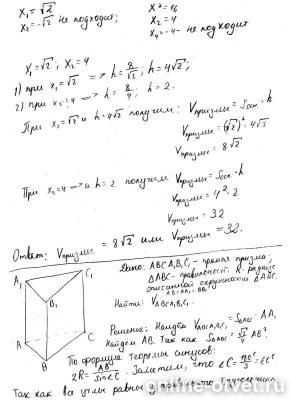 x₁ = √2
x₂ = -√2 не подходит;
x² = 16
x₂ = 4
x₄ = -4 - не подходит
x₁ = √2; x₂ = 4
1) при x₁ = √2 => h = 8/√2; h = 4√2;
2) при x₂ = 4 => h = 8/4; h = 2.
При x₁ = √2 и h = 4√2 получим: Vпризмы = Sосн · h
Vпризмы = (√2)² · 4√2
Vпризмы = 8√2
При x₂ = 4 и h = 2 получим Vпризмы = Sосн · h
Vпризмы = 4² · 2
Vпризмы = 32
Ответ: Vпризмы = 8√2 или Vпризмы = 32.
A₁ C₁
B₁
A C
B
Дано: ABCA₁B₁C₁ - прямая призма;
ΔABC - правильный. R - радиус
описанной окружности ΔABC.
AB = AA₁ = BB₁
Найти: VABCA₁B₁C₁.
Решение: Найдём VABCA₁B₁C₁ = SΔABC · AA₁
Найдём AB. Так как SΔABC = √3/4 AB².
По формуле теоремы синусов:
2R = AB/sin∠C. Заметим, что ∠C = 180°/3 = 60°
Так как все углы равны у правильного треугольника.
online-otvet.ru